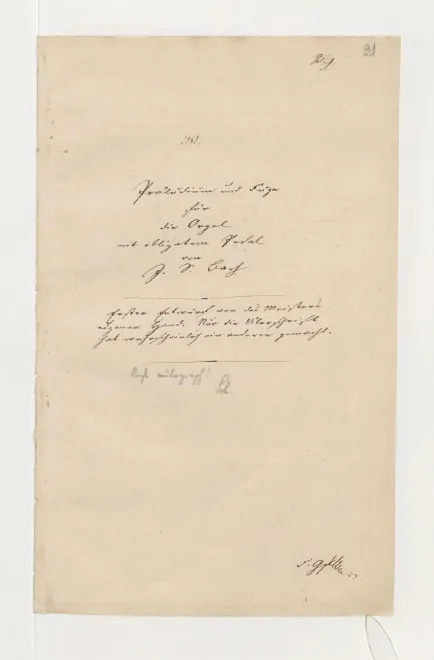 21
Präludium und Fuge
für
die Orgel
mit obligatem Pedal
von
J. S. Bach
Erster Entwurf von des Meisters
eigener Hand. Nur die Überschrift
hat wahrscheinlich ein anderer gemacht.
Nicht autograph!